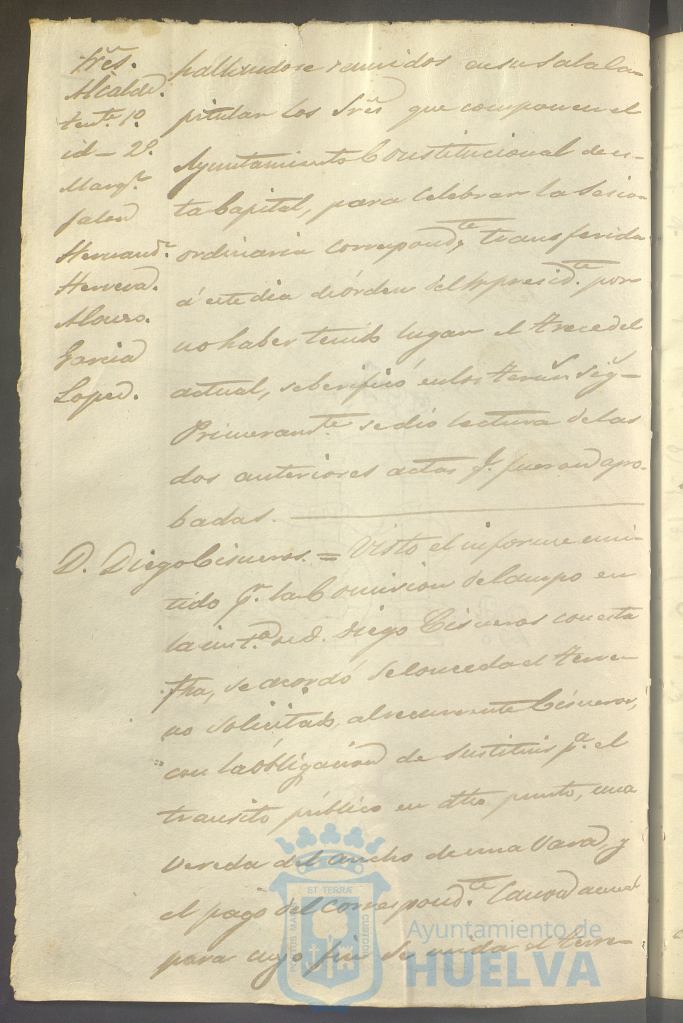 Sres.
Alcalde.
tente. 1º.
id – 2º.
Marqz.
Jalon
Hernandz.
Herrera.
Alonso.
Garcia
Lopez.
hallandose reunidos en su Sala Ca-
pitular los Sres que componen el
Ayuntamiento Constitucional de es-
ta Capital, para celebrar la Sesion
ordinaria correspondte, transferida
á este dia de órden del Sr presidte. por
no haber tenido lugar el trece del
actual, se berificó en los termos. sigs-
Primeramte. se dió lectura de las
dos anteriores actas q. fueron apro-
badas.
D. Diego Cisneros. = Visto el informe emi-
tido pr. la Comision del campo en
la insta. de D. Diego Cisneros con esta
fha, se acordó se conceda el terre-
no solicitado, al recurrente Cisneros,
con la obligacion de sustituir pa. el
transito público en dho punto, una
vereda del ancho de una vara, y
el pago del correspondte. Canon anual
para cuyo fin se mida el terre-
ET TERRÆ
PORTUS MARIS
CUSTODIA
Ayuntamiento de
HUELVA